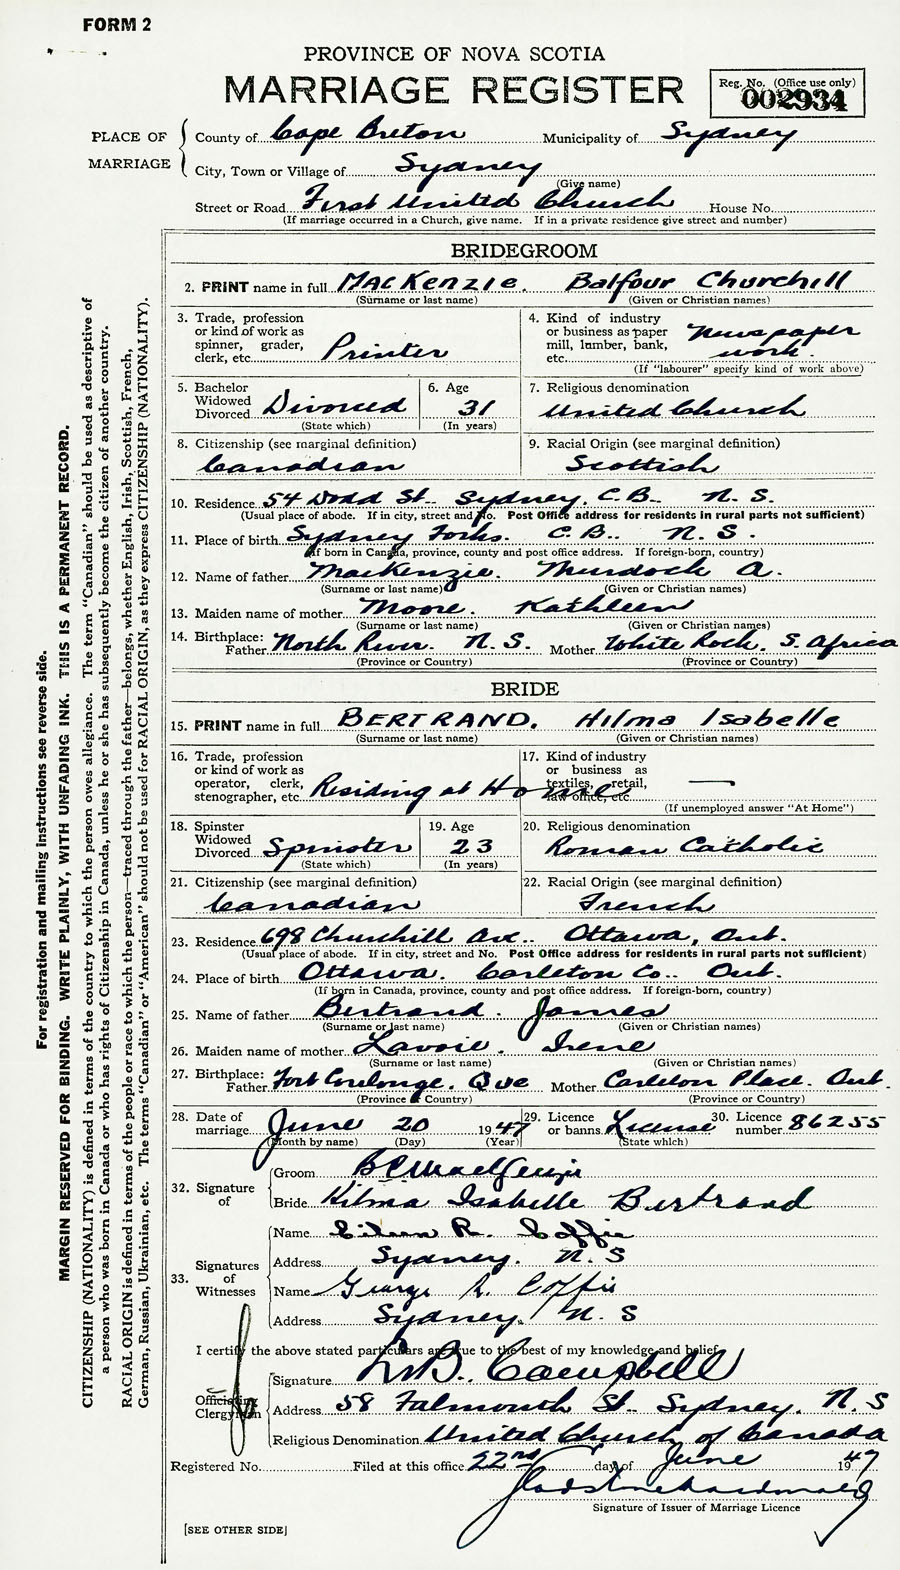 FORM 2
PROVINCE OF NOVA SCOTIA
MARRIAGE REGISTER
Reg. No. (Office use only)
002934
PLACE OF MARRIAGE
County of Cape Breton Municipality of Sydney
City, Town or Village of Sydney
(Give name)
Street or Road First United Church House No.
(If marriage occurred in a Church, give name. If in a private residence give street and number)
BRIDEGROOM
2. PRINT name in full MacKenzie. Balfour Churchill
(Surname or last name) (Given or Christian names)
3. Trade, profession or kind of work as spinner, grader, clerk, etc. Printer
4. Kind of industry or business as paper mill, lumber, bank, etc. Newspaper work.
(If "labourer" specify kind of work above)
5. Bachelor Widowed Divorced Divorced
(State which)
6. Age 31
(In years)
7. Religious denomination
United Church
8. Citizenship (see marginal definition)
Canadian
9. Racial Origin (see marginal definition)
Scottish
10. Residence 54 Dodd St. Sydney, C.B. N.S.
(Usual place of abode. If in city, street and No. Post Office address for residents in rural parts not sufficient)
11. Place of birth Sydney Forks. C.B. N.S.
(If born in Canada, province, county and post office address. If foreign-born, country)
12. Name of father MacKenzie. Murdock A.
(Surname or last name) (Given or Christian names)
13. Maiden name of mother Moore. Kathleen
(Surname or last name) (Given or Christian names)
14. Birthplace: Father North River. N.S. Mother White Rock, S. Africa
(Province or Country) (Province or Country)
BRIDE
15. PRINT name in full BERTRAND. Hilma Isabelle
(Surname or last name) (Given or Christian names)
16. Trade, profession or kind of work as operator, clerk, stenographer, etc. Residing at Home
17. Kind of industry or business as textiles, retail, law office, etc. —
(If unemployed answer "At Home")
18. Spinster Widowed Divorced Spinster
(State which)
19. Age 23
(In years)
20. Religious denomination
Roman Catholic
21. Citizenship (see marginal definition)
Canadian
22. Racial Origin (see marginal definition)
French
23. Residence 698 Churchill Ave. Ottawa, Ont.
(Usual place of abode. If in city, street and No. Post Office address for residents in rural parts not sufficient)
24. Place of birth Ottawa. Carleton Co. Ont.
(If born in Canada, province, county and post office address. If foreign-born, country)
25. Name of father Bertrand. James
(Surname or last name) (Given or Christian names)
26. Maiden name of mother Lavoie. Irene
(Surname or last name) (Given or Christian names)
27. Birthplace: Father Fort Coulonge. Que Mother Carleton Place. Ont.
(Province or Country) (Province or Country)
28. Date of marriage June 20 1947
(Month by name) (Day) (Year)
29. Licence or banns License
(State which)
30. Licence number 86255
32. Signature of
Groom B C MacKenzie
Bride Hilma Isabelle Bertrand
33. Signatures of Witnesses
Name Eileen R. Coffie
Address Sydney. N.S
Name George R. Coffie
Address Sydney. N.S
I certify the above stated particulars are true to the best of my knowledge and belief
Officiating Clergyman
Signature B. Campbell
Address 58 Falmouth St. Sydney. N.S
Religious Denomination United Church of Canada
Registered No. Filed at this office 22nd day of June 1947
Signature of Issuer of Marriage Licence
[SEE OTHER SIDE]
For registration and mailing instructions see reverse side.
MARGIN RESERVED FOR BINDING. WRITE PLAINLY, WITH UNFADING INK. THIS IS A PERMANENT RECORD.
CITIZENSHIP (NATIONALITY) is defined in terms of the country to which the person owes allegiance. The term "Canadian" should be used as descriptive of
a person who was born in Canada or who has rights of Citizenship in Canada, unless he or she has subsequently become the citizen of another country.
RACIAL ORIGIN is defined in terms of the people or race to which the person—traced through the father—belongs, whether English, Irish, Scottish, French,
German, Russian, Ukrainian, etc. The terms "Canadian" or "American" should not be used for RACIAL ORIGIN, as they express CITIZENSHIP (NATIONALITY).